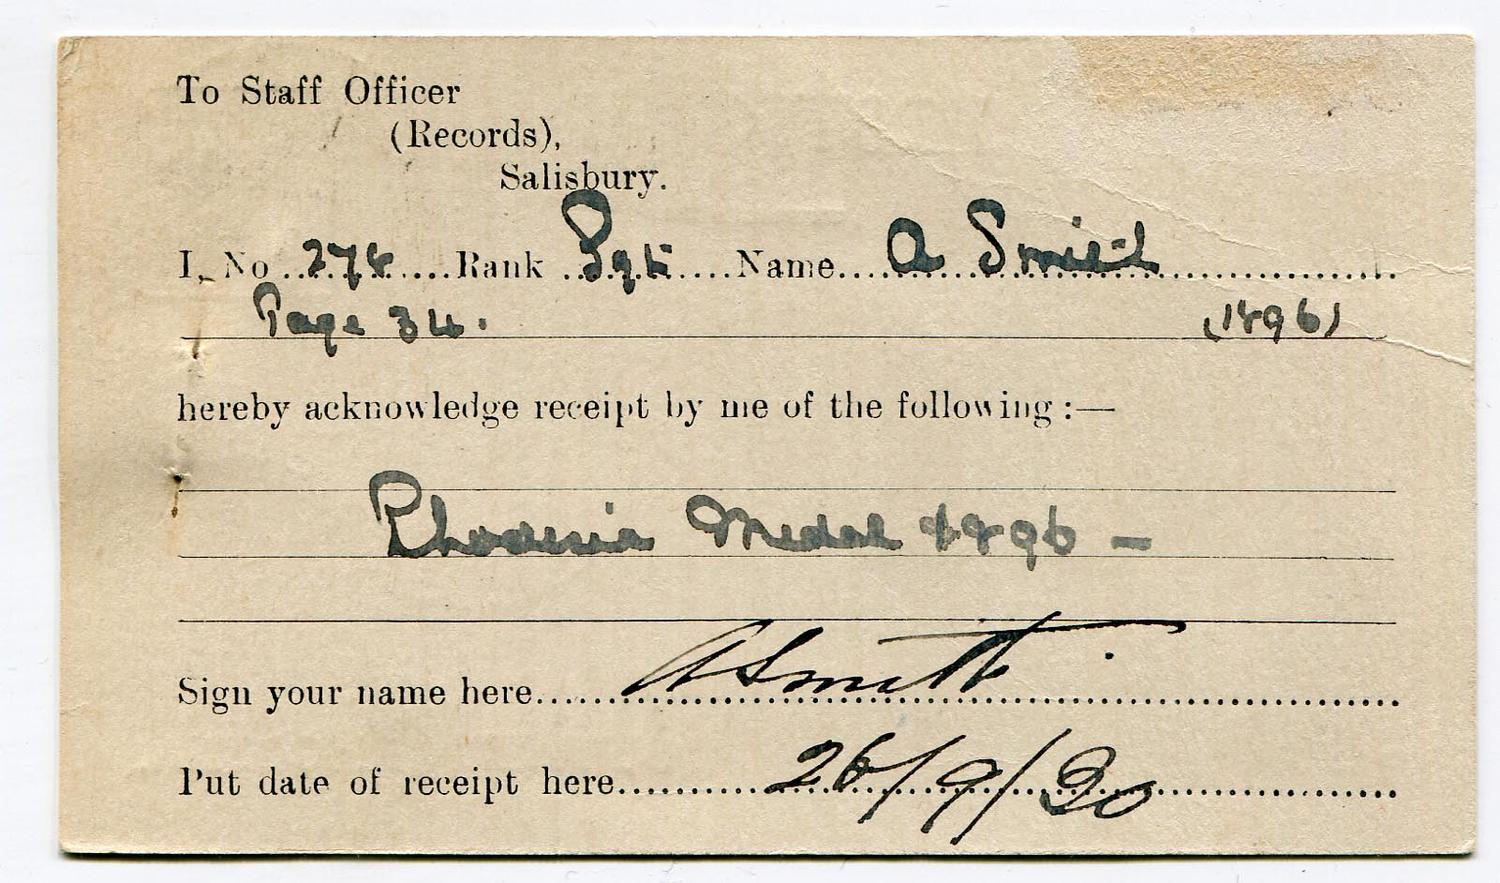 To Staff Officer
(Records),
Salisbury.
I, No ..278.....Rank ..Sgt....Name....A Smith..........................
Page 34. (1896)
hereby acknowledge receipt by me of the following :—
Rhodesia Medal 1896 —
Sign your name here......ASmith..........................
Put date of receipt here..........26/9/30..........................